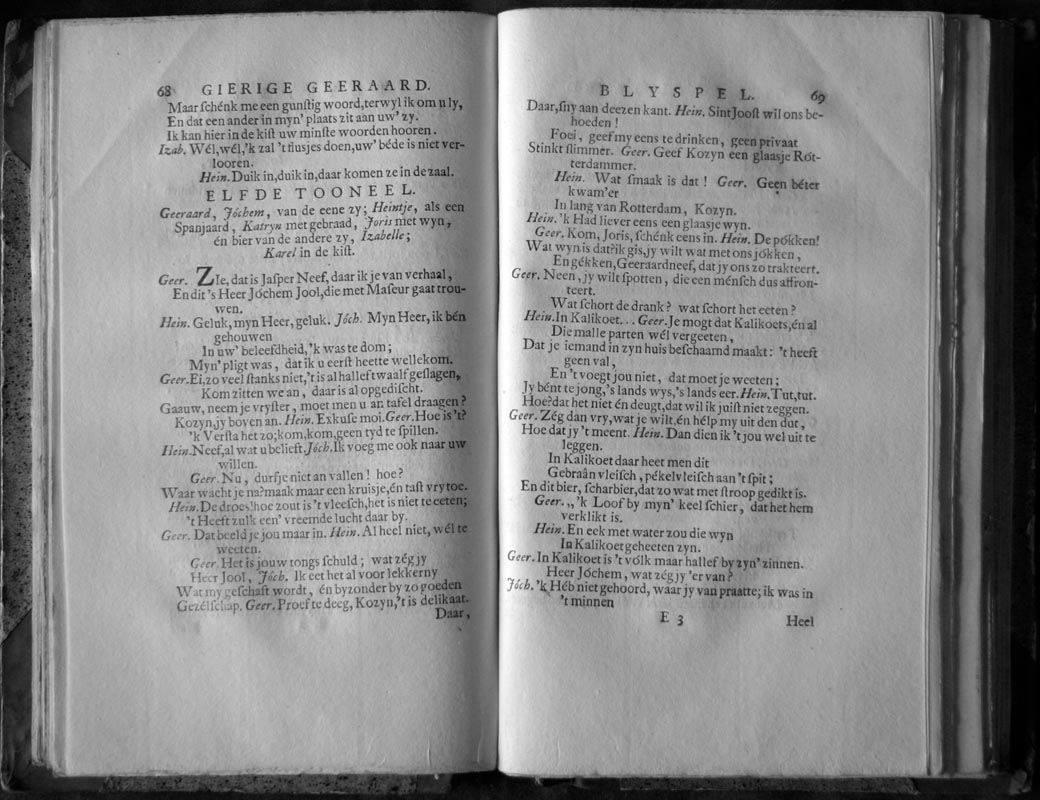 68 GIERIGE GEERAARD.
Maar ſchénk me een gunſtig woord, terwyl ik om u ly,
En dat een ander in myn' plaats zit aan uw' zy.
Ik kan hier in de kiſt uw minſte woorden hooren.
Izab. Wél, wél, 'k zal 't flusjes doen, uw' béde is niet ver-
looren.
Hein. Duik in, duik in, daar komen ze in de zaal.
ELFDE TOONEEL.
Geeraard, Jóchem, van de eene zy; Heintje, als een
Spanjaard, Katryn met gebraad, Joris met wyn,
én bier van de andere zy, Izabelle;
Karel in de kiſt.
Geer. ZIe, dat is Jaſper Neef, daar ik je van verhaal,
En dit 's Heer Jóchem Jool, die met Maſeur gaat trou-
wen.
Hein. Geluk, myn Heer, geluk. Jóch. Myn Heer, ik bén
gehouwen
In uw' beleefdheid, 'k was te dom;
Myn' pligt was, dat ik u eerſt heette wellekom.
Geer. Ei, zo veel ſtanks niet, 't is al halleftwaalf geſlagen,
Kom zitten we an, daar is al opgediſcht.
Gaauw, neem je vryſter, moet men u an tafel draagen?
Kozyn, jy boven an. Hein. Exkuſe moi. Geer. Hoe is 't?
'k Verſta het zo; kom, kom, geen tyd te ſpillen.
Hein. Neef, al wat u belieft. Jóch. Ik voeg me ook naar uw
willen.
Geer. Nu, durfje niet an vallen! hoe?
Waar wacht je na? maak maar een kruisje, én taſt vry toe.
Hein. De droes! hoe zout is 't vleeſch, het is niet te eeten;
't Heeft zulk een' vreemde lucht daar by.
Geer. Dat beeld je jou maar in. Hein. Al heel niet, wél te
weeten.
Geer. Het is jouw tongs ſchuld; wat zég jy
Heer Jool, Jóch. Ik eet het al voor lekkerny
Wat my geſchaft wordt, én byzonder by zo goeden
Gezélſchap. Geer. Proef te deeg, Kozyn, 't is delikaat.
Daar,
BLYSPEL. 69
Daar, ſny aan deezen kant. Hein. Sint Jooſt wil ons be-
hoeden!
Foei, geef my eens te drinken, geen privaat
Stinkt ſlimmer. Geer. Geef Kozyn een glaasje Rót-
terdammer.
Hein. Wat ſmaak is dat! Geer. Geen béter
kwam'er
In lang van Rotterdam, Kozyn.
Hein. 'k Had liever eens een glaasje wyn.
Geer. Kom, Joris, ſchénk eens in. Hein. De pókken!
Wat wyn is dat? ik gis, jy wilt wat met ons jókken,
En gékken, Geeraardneef, dat jy ons zo trakteert.
Geer. Neen, jy wilt ſpotten, die een ménſch dus affron-
teert.
Wat ſchort de drank? wat ſchort het eeten?
Hein. In Kalikoet... Geer. Je mogt dat Kalikoets, én al
Die malle parten wél vergeeten,
Dat je iemand in zyn huis beſchaamd maakt: 't heeft
geen val,
En 't voegt jou niet, dat moet je weeten;
Jy bént te jong, 's lands wys, 's lands eer. Hein. Tut, tut.
Hoe? dat het niet én deugt, dat wil ik juiſt niet zeggen.
Geer. Zég dan vry, wat je wilt, én hélp my uit den dut,
Hoe dat jy 't meent. Hein. Dan dien ik 't jou wel uit te
leggen.
In Kalikoet daar heet men dit
Gebraân vleiſch, pékelvleiſch aan 't ſpit;
En dit bier, ſcharbier, dat zo wat met ſtroop gedikt is.
Geer. „ 'k Loof by myn' keel ſchier, dat het hem
verklikt is.
Hein. En eek met water zou die wyn
In Kalikoet geheeten zyn.
Geer. In Kalikoet is 't vólk maar hallef by zyn' zinnen.
Heer Jóchem, wat zég jy 'er van?
Jóch. 'k Héb niet gehoord, waar jy van praatte; ik was in
't minnen
E 3 Heel